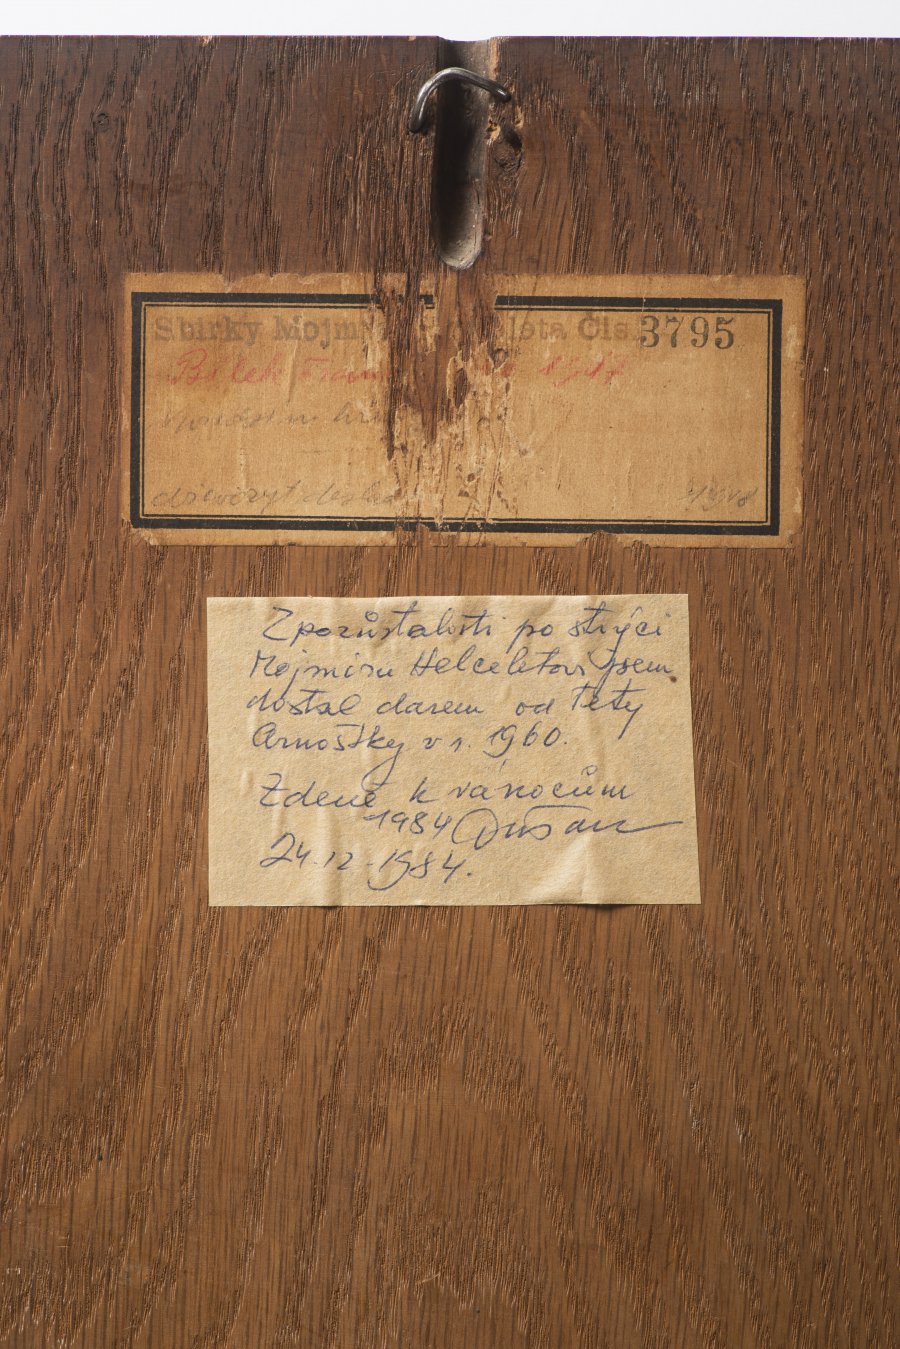 Sbírky Mojm Čís. 3795
Bílek
dřevoryt
Z pozůstalosti po strýci
Mojmíru Helceletovi jsem
dostal darem od tety
Arnoštky v r. 1960.
Zdeně k vánocům
1984 Dušan
24.12.1984.